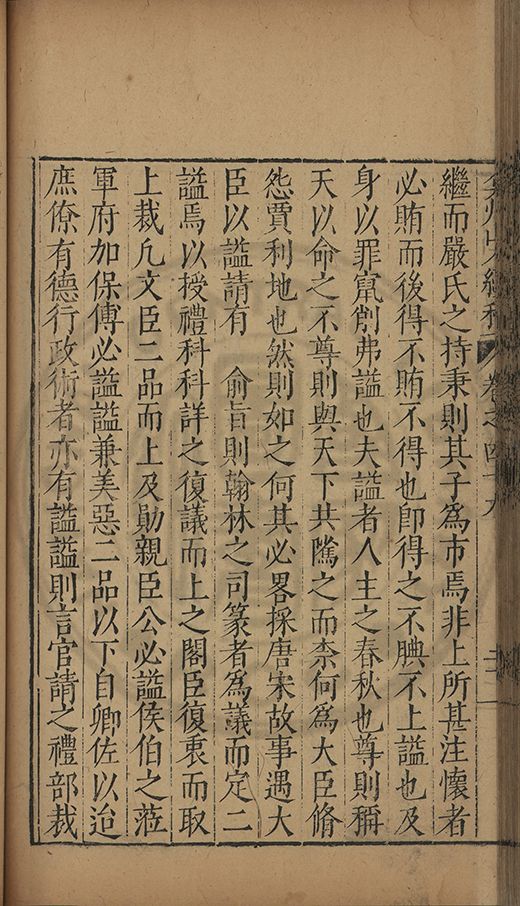 弇州史料 卷之四十九 十一
繼而嚴氏之持秉則其子爲市焉非上所甚注懷者
必賄而後得不賄不得也卽得之不腆不上謚也及
身以罪竄削弗謚也夫謚者人主之春秋也尊則稱
天以命之不尊則與天下共隲之而柰何爲大臣脩
怨賈利地也然則如之何其必畧採唐宋故事遇大
臣以謚請有 俞旨則翰林之司篆者爲議而定二
謚焉以授禮科科詳之復議而上之閣臣復衷而取
上裁凢文臣二品而上及勛親臣公必謚侯伯之蒞
軍府加保傅必謚謚兼美惡二品以下自卿佐以迨
庶僚有德行政術者亦有謚謚則言官請之禮部裁